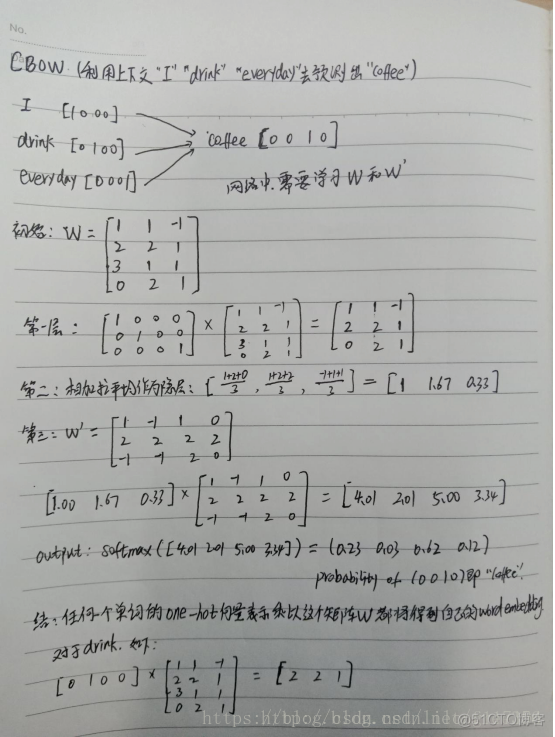 No.
CBOW (利用上下文"I" "drink" "everyday"去预测出"coffee")
I [1 0 0 0]
drink [0 1 0 0] coffee [0 0 1 0]
everyday [0 0 0 1]
网络中,需要学习W和W'
初始: W = [1 1 -1
2 2 1
3 1 1
0 2 1]
第一层: [1 0 0 0
0 1 0 0
0 0 0 1] × [1 1 -1
2 2 1
3 1 1
0 2 1] = [1 1 -1
2 2 1
0 2 1]
第二: 相加拉平均作为隐层: [1+2+0/3, 1+2+2/3, -1+1+1/3] = [1 1.67 0.33]
第三: W' = [1 -1 1 0
2 2 2 2
-1 -1 2 0]
[1.00 1.67 0.33] × [1 -1 1 0
2 2 2 2
-1 -1 2 0] = [4.01 2.01 5.00 3.34]
output: softmax([4.01 2.01 5.00 3.34]) = (0.23 0.03 0.62 0.12)
probability of (0 0 1 0) 即 "coffee".
结: 任何一个单词的one-hot向量表示乘以这个矩阵W都将得到自己的word embedding
对于drink, 如下:
[0 1 0 0] × [1 1 -1
2 2 1
3 1 1
0 2 1] = [2 2 1]
@51CTO博客